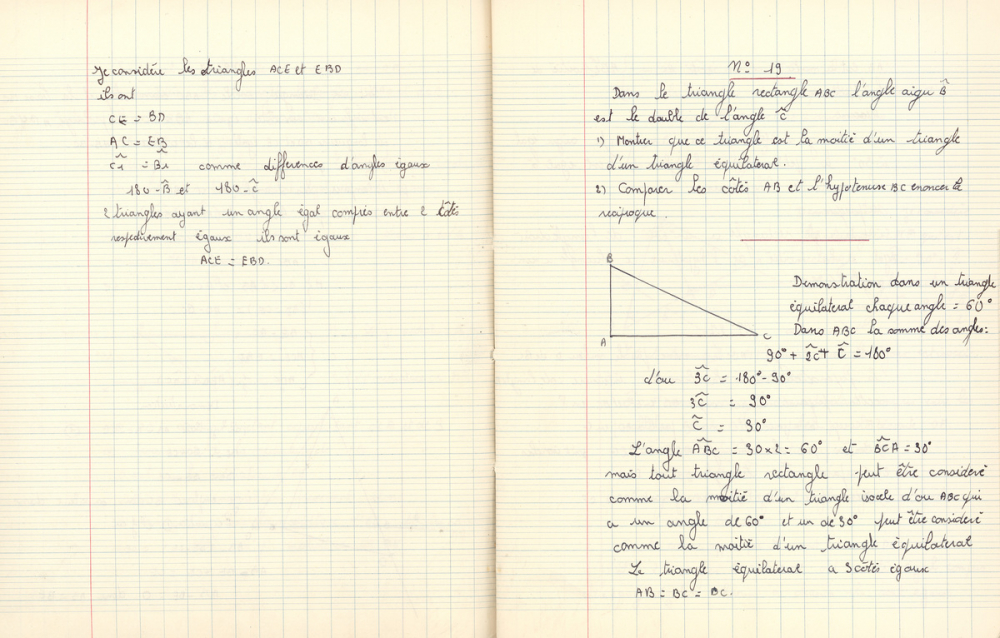 Je considère les triangles ACE et EBD
ils ont
CE = BD
AC = EB
Ĉ1 = B̂1 comme différences d'angles égaux
180 - B̂ et 180 - Ĉ
2 triangles ayant un angle égal compris entre 2 côtés
respectivement égaux ils sont égaux
ACE = EBD.
N° 19
Dans le triangle rectangle ABC l'angle aigu B̂
est le double de l'angle Ĉ
1) Montrer que ce triangle est la moitié d'un triangle
d'un triangle équilateral.
2) Comparer les côtés AB et l'hypotenuse BC enoncer la
réciproque.
B
A
C
Demonstration dans un triangle
équilateral chaque angle = 60°
Dans ABC la somme des angles:
90° + 2Ĉ + Ĉ = 180°
d'ou 3Ĉ = 180° - 90°
3Ĉ = 90°
Ĉ = 30°
L'angle ABC = 30 x 2 = 60° et BCA = 30°
mais tout triangle rectangle peut être consideré
comme la moitié d'un triangle isocele d'ou ABC qui
a un angle de 60° et un de 30° peut être consideré
comme la moitié d'un triangle équilateral
Le triangle équilateral a 3 côtés égaux
AB = BC = DC.